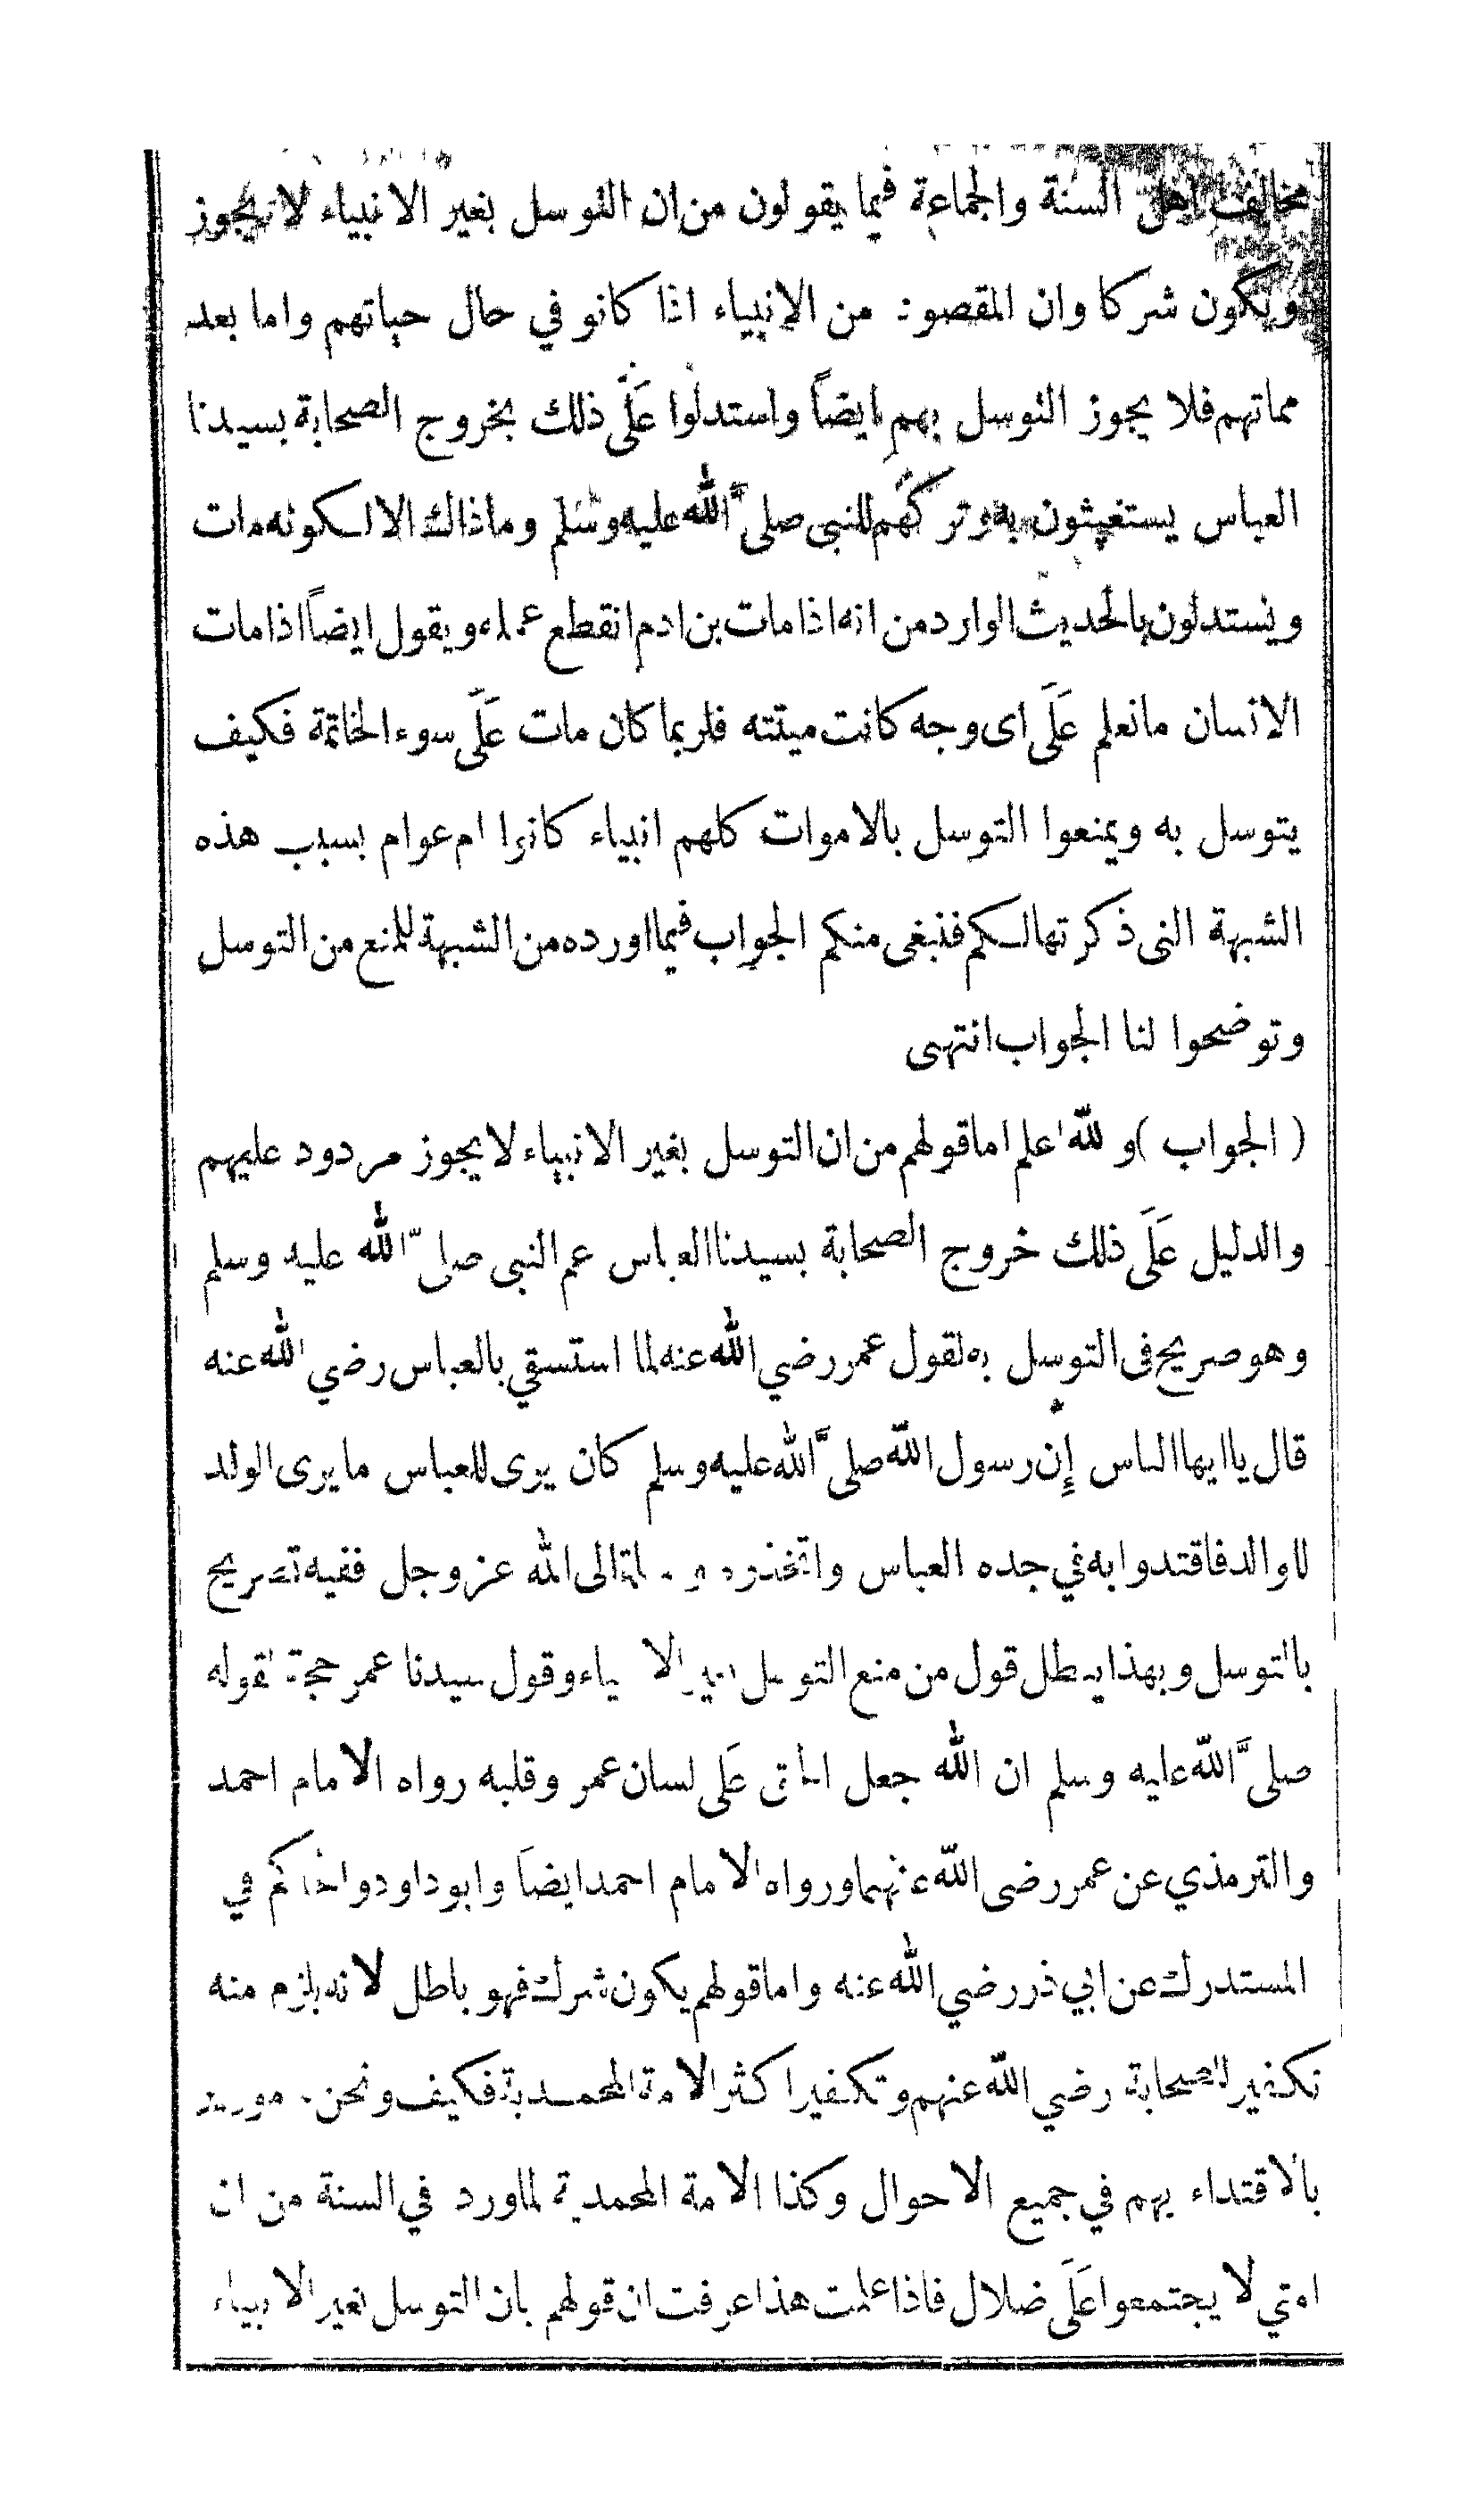 مخالف اهل السنة والجماعة فيما يقولون من ان التوسل بغير الانبياء لا يجوز
ويكون شركا وان المقصود من الانبياء اذا كانو في حال حياتهم واما بعد
مماتهم فلا يجوز التوسل بهم ايضاً واستدلوا عَلَى ذلك بخروج الصحابة بسيدنا
العباس يستغيثون به وتركهم للنبي صلى الله عليه وسلم وماذاك الا لكونه مات
ويستدلون بالحديث الوارد من انه اذا مات بن ادم انقطع عمله ويقول ايضاً اذا مات
الانسان مانعلم عَلَى اى وجه كانت ميتته فلربما كان مات عَلَى سوء الخاتمة فكيف
يتوسل به ويمنعوا التوسل بالاموات كلهم انبياء كانوا ام عوام بسبب هذه
الشبهة التى ذكرتها لكم فنبغى منكم الجواب فيما اورده من الشبهة للمنع من التوسل
وتوضحوا لنا الجواب انتهى
( الجواب ) والله اعلم اما قولهم من ان التوسل بغير الانبياء لا يجوز مردود عليهم
والدليل عَلَى ذلك خروج الصحابة بسيدنا العباس عم النبى صلى الله عليه وسلم
وهو صريح فى التوسل به لقول عمر رضي الله عنه لما استسقي بالعباس رضي الله عنه
قال يا ايها الناس إن رسول الله صلى الله عليه وسلم كان يرى للعباس ما يرى الولد
للوالد فاقتدوا به في جده العباس واتخذوه الى الله عز وجل ففيه تصريح
بالتوسل وبهذا يبطل قول من منع التوسل بغير الانبياء وقول سيدنا عمر حجة لقوله
صلى الله عليه وسلم ان الله جعل الحق عَلَى لسان عمر وقلبه رواه الامام احمد
والترمذي عن عمر رضى الله عنهما ورواه الامام احمد ايضاً وابو داود والحاكم في
المستدرك عن ابي ذر رضي الله عنه واما قولهم يكون شرك فهو باطل لانه يلزم منه
تكفير الصحابة رضي الله عنهم وتكفير اكثر الامة المحمدية فكيف ونحن
بالاقتداء بهم في جميع الاحوال وكذا الامة المحمدية لما ورد في السنة من ان
امتي لا يجتمعوا عَلَى ضلال فاذا علمت هذا عرفت ان قولهم بان التوسل بغير الانبياء